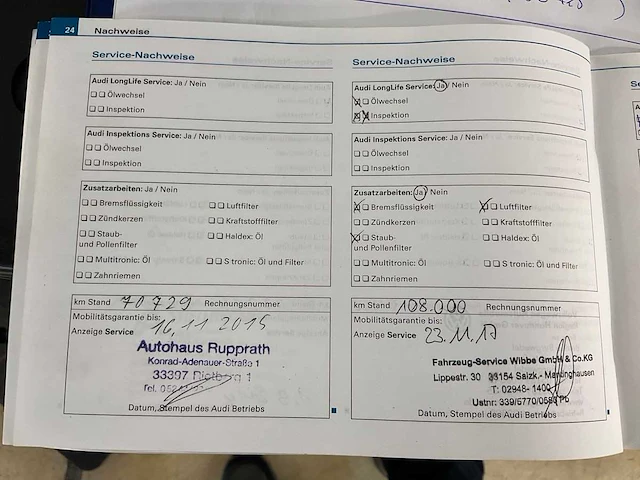 24 Nachweise
Service-Nachweise
Audi LongLife Service: Ja / Nein
Ölwechsel
Inspektion
Audi Inspektions Service: Ja / Nein
Ölwechsel
Inspektion
Zusatzarbeiten: Ja / Nein
Bremsflüssigkeit Luftfilter
Zündkerzen Kraftstofffilter
Staub- Haldex: Öl
und Pollenfilter
Multitronic: Öl S tronic: Öl und Filter
Zahnriemen
km Stand 70 729 Rechnungsnummer
Mobilitätsgarantie bis:
Anzeige Service 16,11 2015
Autohaus Rupprath
Konrad-Adenauer-Straße 1
33397 Rietberg 1
Tel.
Datum, Stempel des Audi Betriebs
Service-Nachweise
Audi LongLife Service: Ja / Nein
Ölwechsel
Inspektion
Audi Inspektions Service: Ja / Nein
Ölwechsel
Inspektion
Zusatzarbeiten: Ja / Nein
Bremsflüssigkeit Luftfilter
Zündkerzen Kraftstofffilter
Staub- Haldex: Öl
und Pollenfilter
Multitronic: Öl S tronic: Öl und Filter
Zahnriemen
km Stand 108.000 Rechnungsnummer
Mobilitätsgarantie bis:
Anzeige Service 23.11.17
Fahrzeug-Service Wibbe GmbH & Co.KG
Lippestr. 30 33154 Salzk.- Mantinghausen
T: 02948- 1400
Ustnr: 339/5770/0580 Pb
Datum, Stempel des Audi Betriebs